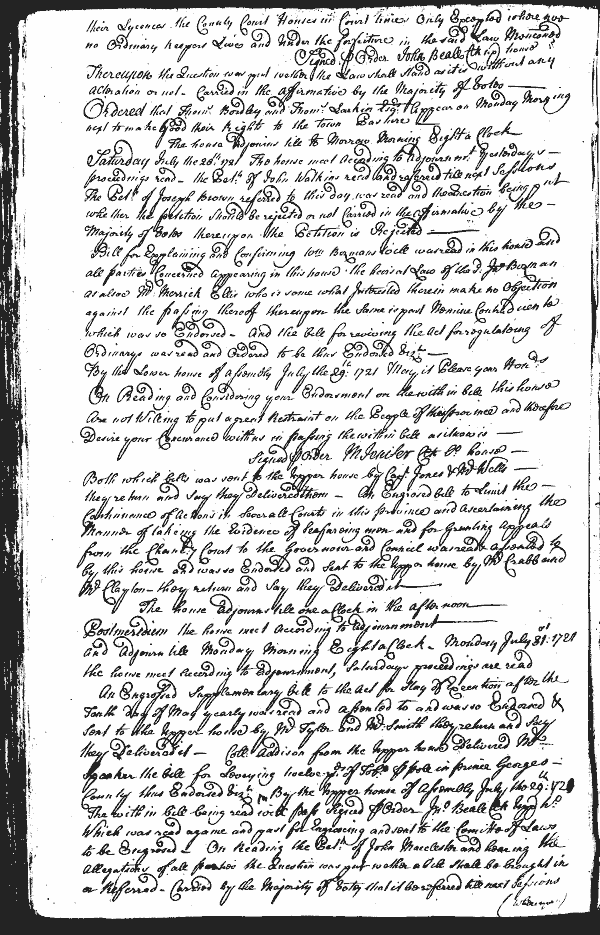 their Lycences the County Court Houses in Court time Only Excepted where
no Ordinary keepers Lives and under the forfeiture in the said Law Menconed
Signed p Order John Beale Clk up house
Thereupon the Question was put wether the Law shall stand as it is without any
alteration or not - Carried in the affirmative by the Majority of Votes
Ordered that Thoms. Bordley and Thoms. Larkin Esqrs. appear on Monday Morning
next to make good their Right to the town Pasture
The house adjourns till to Morrow Morning Eight a Clock
Saturday July the 1721 The house meet According to adjournmt. Yesterdays
proceedings read - the Petn. of John Watkins read and referred till next Sessions
The Petn. of Joseph Brown referred to this day was read and the Question being put
whether the petition Should be rejected or not Carried in the affirmative by the
Majority of Votes thereupon the Petition is Rejected
Bill for Explaining and Confirming Wm Bormans Will was read in this house and
all parties Concerned appearing in this house the heir at Law of the sd. Jno Borman
as also Mr. Merrick Ellis who is some what Interested therein make no Objection
against the passing thereof thereupon the Same is past Nemine Contradicente
which was so Endorsed - And the bill for reviving the Act for regulating of
Ordinarys was read and Ordered to be thus Endorsed Vizt.
By the Lower house of assembly July the 29th. 1721 May it Please your Honrs
On Reading and Considering your Endorsment on the with in bill this house
Are not Willing to put a great Restraint on the People of this province and therefore
Desire your Concurrance with us in passing the with in bill as it now is
Signed p Order M Jenifer Clk Lo. house
Both which bills was sent to the Upper house by Capt Jones & Mr Wells
they return and Say they Delivered them - An Engrosed bill to Limit the
Continuance of Actions in Severall Courts in this province and ascertaining the
Manner of takeing the Evidence of Seafaring men and for Granting Appeals
from the Chancy Court to the Governour and Council was read assented to
by this house and was so Endorsed and Sent to the Upper house by Mr Crabb and
Mr Clayton - they return and Say they Delivered it
The house adjourns till one a Clock in the afternoon
Postmeridium the house meet According to adjournment
And adjourn till Monday Morning Eight a Clock - Monday July 31st: 1721
the house meet According to Adjournment, Saturdays proceedings are read
An Engrossed Supplementary bill to the Act for Stay of Execution after the
Tenth day of May yearly was read and assented to and was so Endorsed &
sent to the Upper house by Mr Tyler and Mr Smith they return and Say
they Delivered it - Coll: Addison from the Upper house Delivered Mr.
Speaker the bill for Leveying twelve pds. of Tobo. p pole in prince Georges
County thus Endorsed Vizt. By the Upper house of Assembly July the 29th. 1721
The with in bill being read will pass Signed p Order Jno Beale Clk upp ho:
Which was read againe and past for Engrosing and sent to the Comitte of Laws
to be Engrosed - On Reading the Petn. of John Maccleston and hearing the
Allegations of all parties the Question was put wether a bill shall be brought in
or Referred - Carried by the Majority of Votes that it be referred till next Sessions